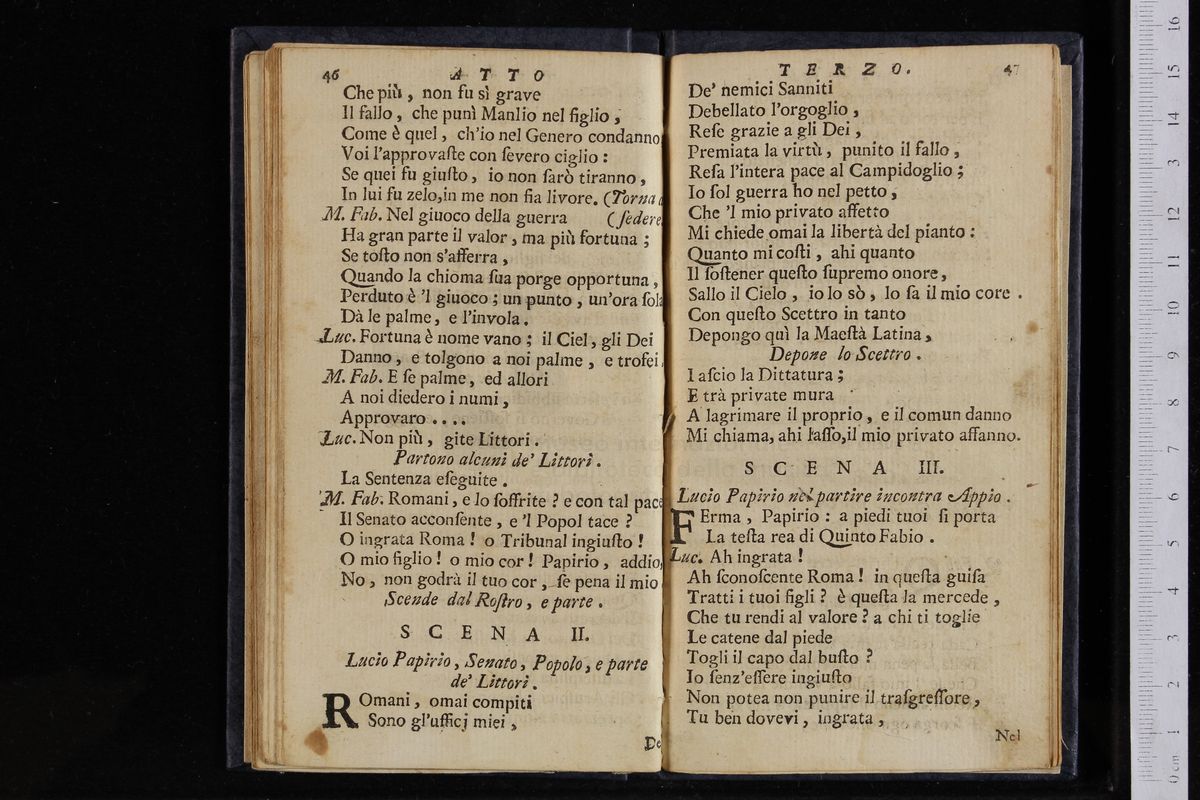 46 ATTO
Che più, non fu sì grave
Il fallo, che punì Manlio nel figlio,
Come è quel, ch'io nel Genero condanno
Voi l'approvaſte con ſevero ciglio:
Se quei fu giuſto, io non ſarò tiranno,
In lui fu zelo,in me non ſia livore. (Torna a
M. Fab. Nel giuoco della guerra (ſedere
Ha gran parte il valor, ma più fortuna;
Se toſto non s'afferra,
Quando la chioma ſua porge opportuna,
Perduto è 'l giuoco; un punto, un'ora ſola
Dà le palme, e l'invola.
Luc. Fortuna è nome vano; il Ciel, gli Dei
Danno, e tolgono a noi palme, e trofei.
M. Fab. E ſe palme, ed allori
A noi diedero i numi,
Approvaro ....
Luc. Non più, gite Littori.
Partono alcuni de' Littori.
La Sentenza eſeguite.
M. Fab. Romani, e lo ſoffrite? e con tal pace
Il Senato acconſente, e 'l Popol tace?
O ingrata Roma! o Tribunal ingiuſto!
O mio figlio! o mio cor! Papirio, addio,
No, non godrà il tuo cor, ſe pena il mio
Scende dal Roſtro, e parte.
SCENA II.
Lucio Papirio, Senato, Popolo, e parte
de' Littori.
ROmani, omai compiti
Sono gl'ufficj miei,
De'
TERZO. 47
De' nemici Sanniti
Debellato l'orgoglio,
Reſe grazie a gli Dei,
Premiata la virtù, punito il fallo,
Reſa l'intera pace al Campidoglio;
Io ſol guerra ho nel petto,
Che 'l mio privato affetto
Mi chiede omai la libertà del pianto:
Quanto mi coſti, ahi quanto
Il ſoſtener queſto ſupremo onore,
Sallo il Cielo, io lo sò, lo ſa il mio core.
Con queſto Scettro in tanto
Depongo quì la Maeſtà Latina,
Depone lo Scettro.
Laſcio la Dittatura;
E trà private mura
A lagrimare il proprio, e il comun danno
Mi chiama, ahi laſſo,il mio privato affanno.
SCENA III.
Lucio Papirio nel partire incontra Appio.
FErma, Papirio: a piedi tuoi ſi porta
La teſta rea di Quinto Fabio.
Luc. Ah ingrata!
Ah ſconoſcente Roma! in queſta guiſa
Tratti i tuoi figli? è queſta la mercede,
Che tu rendi al valore? a chi ti toglie
Le catene dal piede
Togli il capo dal buſto?
Io ſenz'eſſere ingiuſto
Non potea non punire il traſgreſſore,
Tu ben dovevi, ingrata,
Nel
0 cm 1 2 3 4 5 6 7 8 9 10 11 12 13 14 15 16